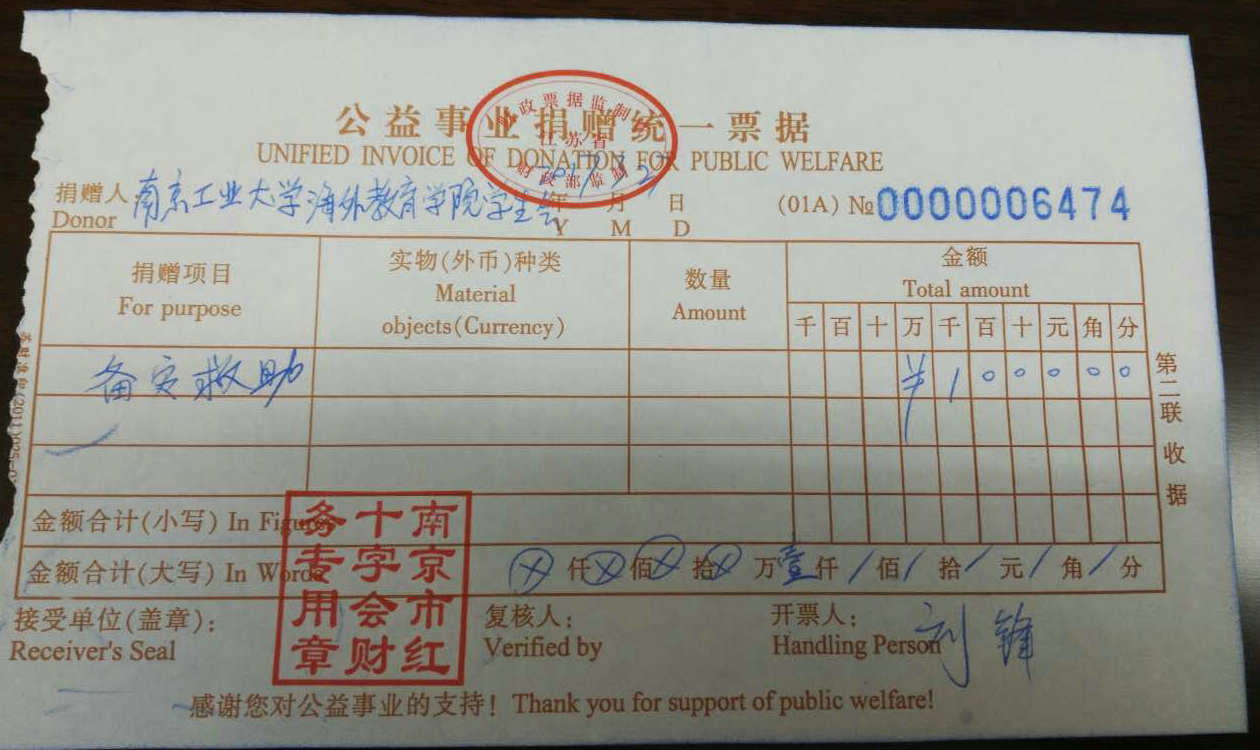 公益事业捐赠统一票据
UNIFIED INVOICE OF DONATION FOR PUBLIC WELFARE
财政票据监制章
江苏省
财政部监制
捐赠人 南京工业大学海外教育学院学生会 年 月 日 (01A) №0000006474
Donor Y M D
捐赠项目 实物(外币)种类 数量 金额
For purpose Material objects(Currency) Amount Total amount
千 百 十 万 千 百 十 元 角 分
备灾救助 ¥ 1 0 0 0 0 0
第二联 收据
金额合计(小写) In Figures
金额合计(大写) In Words ⊗ 仟 ⊗ 佰 ⊗ 拾 ⊗ 万 壹 仟 / 佰 / 拾 / 元 / 角 / 分
南京市红十字会财务专用章
接受单位(盖章): 复核人: 开票人: 刘锋
Receiver's Seal Verified by Handling Person
感谢您对公益事业的支持! Thank you for support of public welfare!